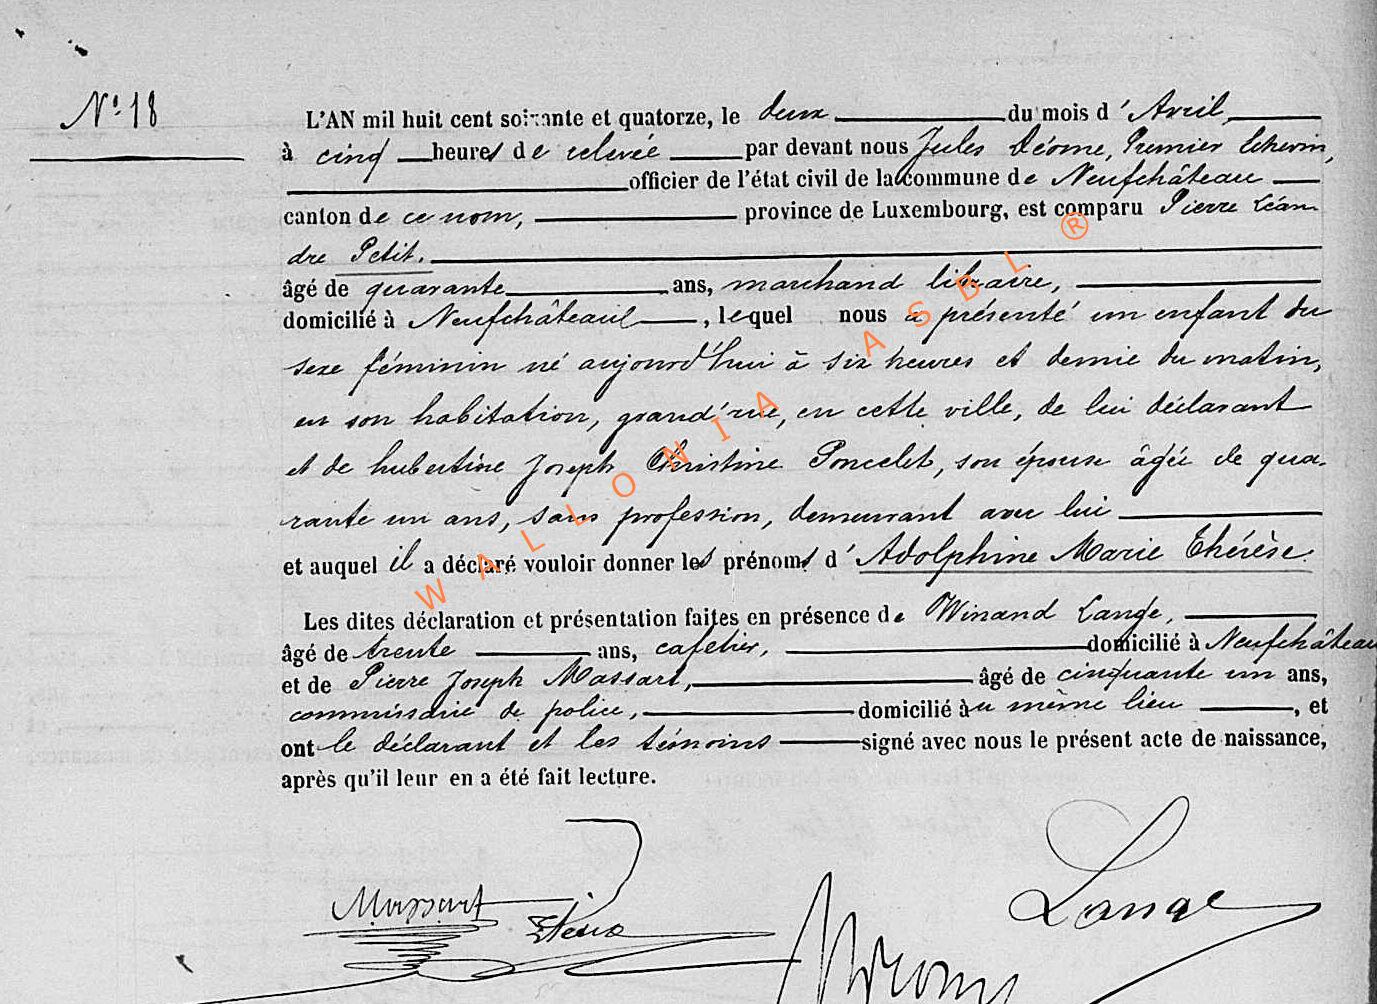 N° 18
L'AN mil huit cent soixante et quatorze, le deux du mois d'Avril,
à cinq heures de relevée par devant nous Jules Déome, Premier Echevin,
officier de l'état civil de la commune de Neufchâteau
canton de ce nom, province de Luxembourg, est comparu Pierre Léan-
dre Petit.
âgé de quarante ans, marchand libraire,
domicilié à Neufchâteau, lequel nous a présenté un enfant du
sexe féminin né aujourd'hui à six heures et demie du matin,
en son habitation, grand'rue, en cette ville, de lui déclarant
et de hubertine Joseph Christine Poncelet, son épouse âgée de qua-
rante un ans, sans profession, demeurant avec lui
et auquel il a déclaré vouloir donner les prénoms d'Adolphine Marie Thérèse.
Les dites déclaration et présentation faites en présence de Winand Lange,
âgé de trente ans, cafetier, domicilié à Neufchâteau
et de Pierre Joseph Massart, âgé de cinquante un ans,
commissaire de police, domicilié au même lieu, et
ont le déclarant et les témoins signé avec nous le présent acte de naissance,
après qu'il leur en a été fait lecture.
Lange
Massart
WALLONIA ASBL ®